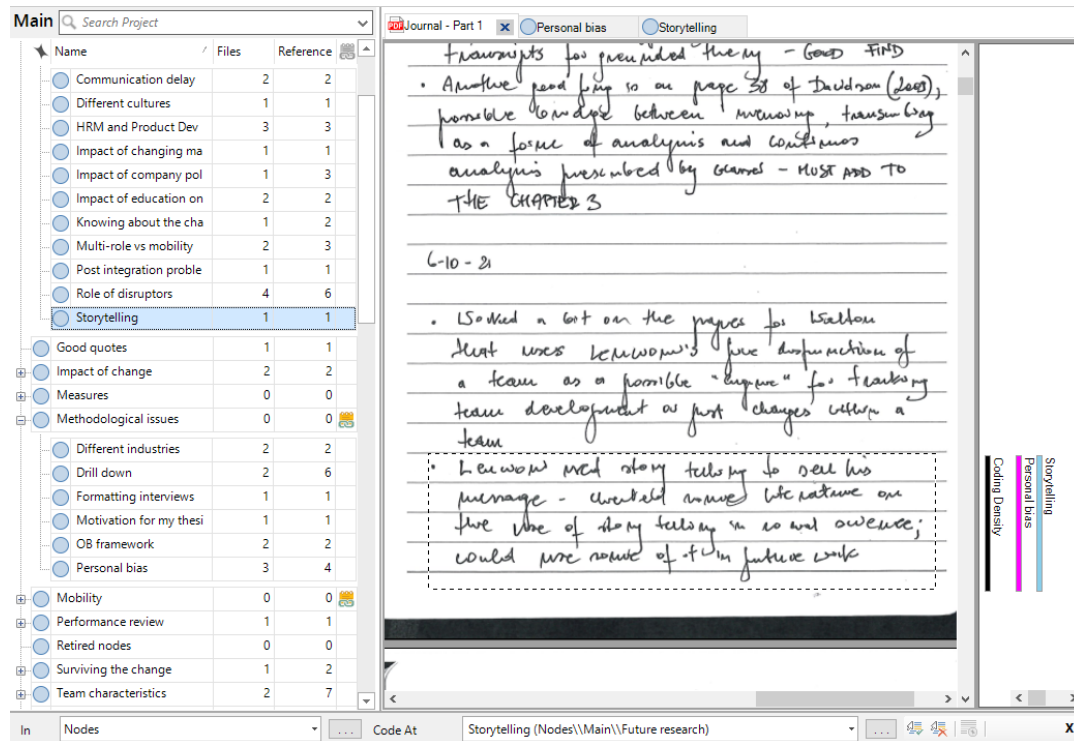 Main
Search Project
Name Files Reference
Communication delay 2 2
Different cultures 1 1
HRM and Product Dev 3 3
Impact of changing ma 1 1
Impact of company pol 1 3
Impact of education on 2 2
Knowing about the cha 1 2
Multi-role vs mobility 2 3
Post integration proble 1 1
Role of disruptors 4 6
Storytelling 1 1
Good quotes 1 1
Impact of change 2 2
Measures 0 0
Methodological issues 0 0
Different industries 2 2
Drill down 2 6
Formatting interviews 1 1
Motivation for my thesi 1 1
OB framework 2 2
Personal bias 3 4
Mobility 0 0
Performance review 1 1
Retired nodes 0 0
Surviving the change 1 2
Team characteristics 2 7
PDF Journal - Part 1 X Personal bias Storytelling
transcripts for grounded theory - GOOD FIND
• Another good on page 38 of Davidson
possible bridge between memoing, transcribing
as a form of analysis and
analysis prescribed by - MUST ADD TO
THE CHAPTER 3
6-10-21
• Worked a bit on the for Walton
that uses five of
a team as a possible "engine" for tracking
team development as changes within a
team
• used story telling to sell his
message - checked some literature on
the use of story telling in science;
could use some of it in future work
Storytelling
Personal bias
Coding Density
In Nodes ... Code At Storytelling (Nodes\\Main\\Future research) ... X